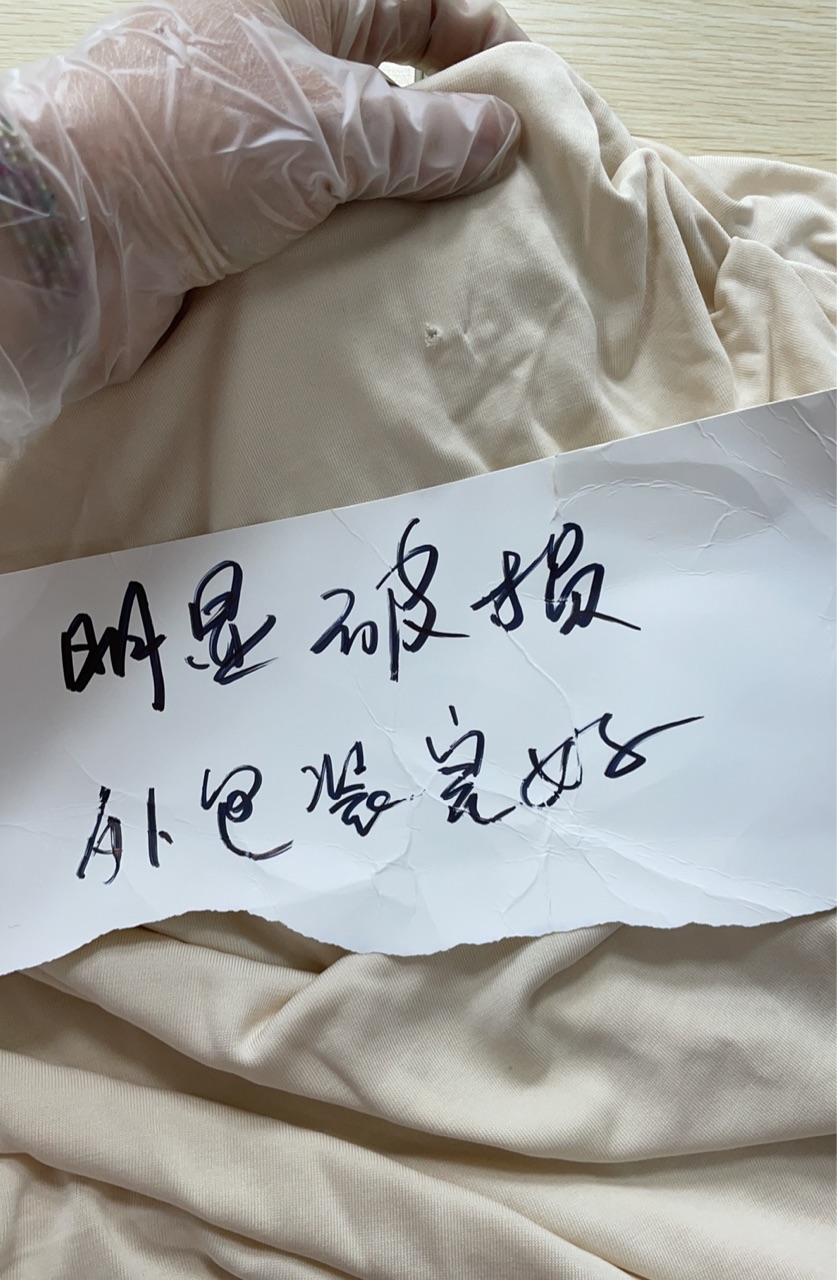 明显破损
外包装完好